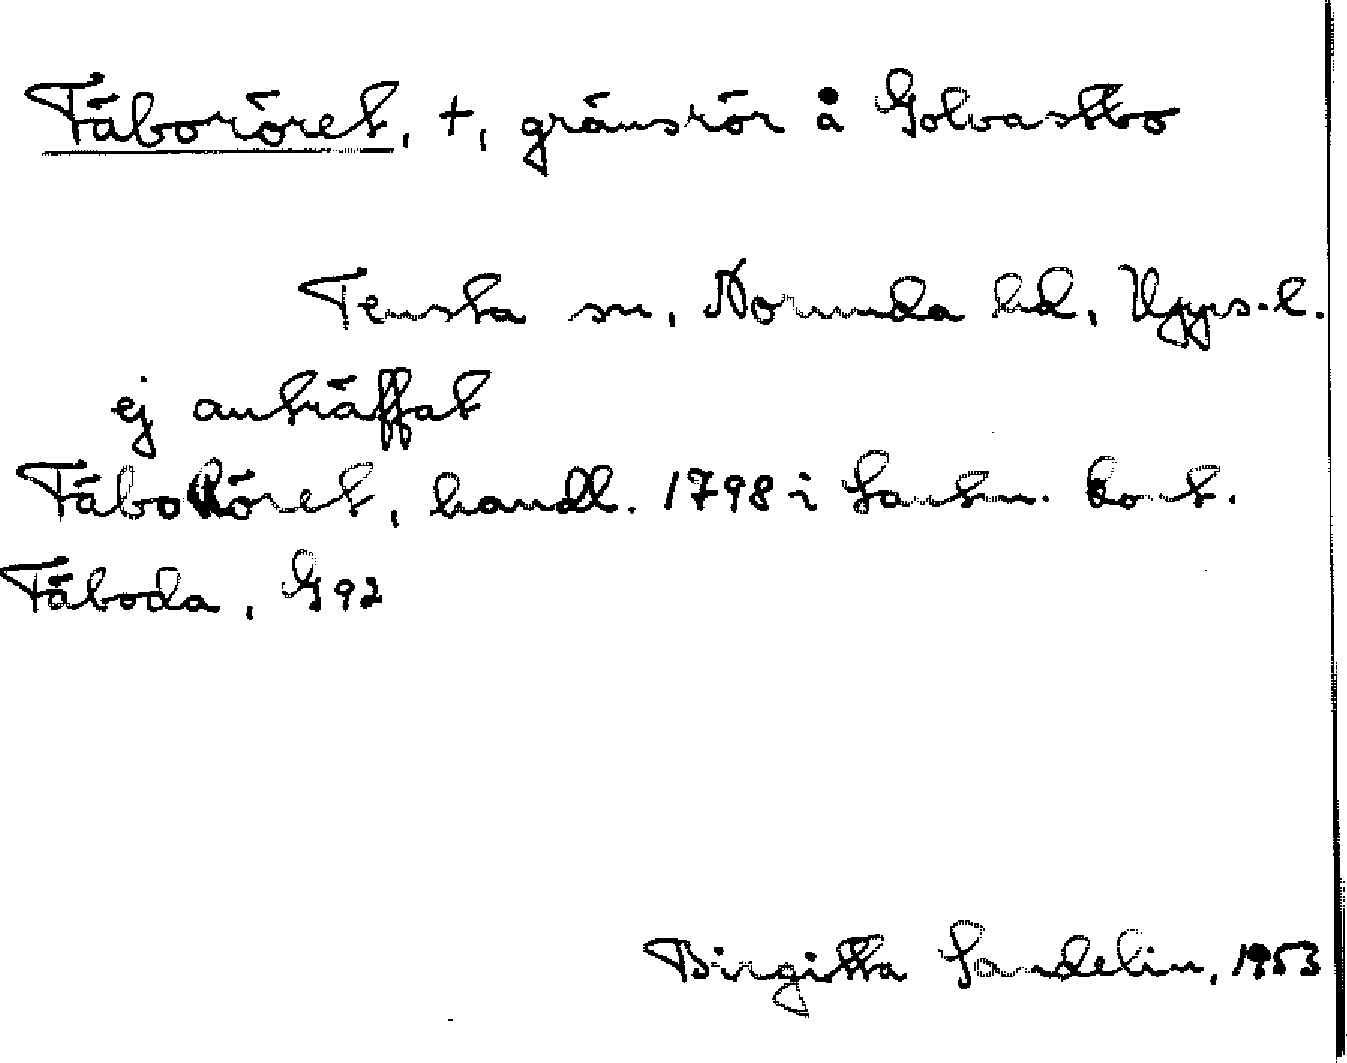 Fäboröret, +, gränsrör å Golvastbo
Tensta sn, Norunda hd, Upps.l.
ej anträffat
FäboRöret, handl. 1798 i Lantm. kont.
Fäboda, G 92
Birgitta Sandelin, 1953